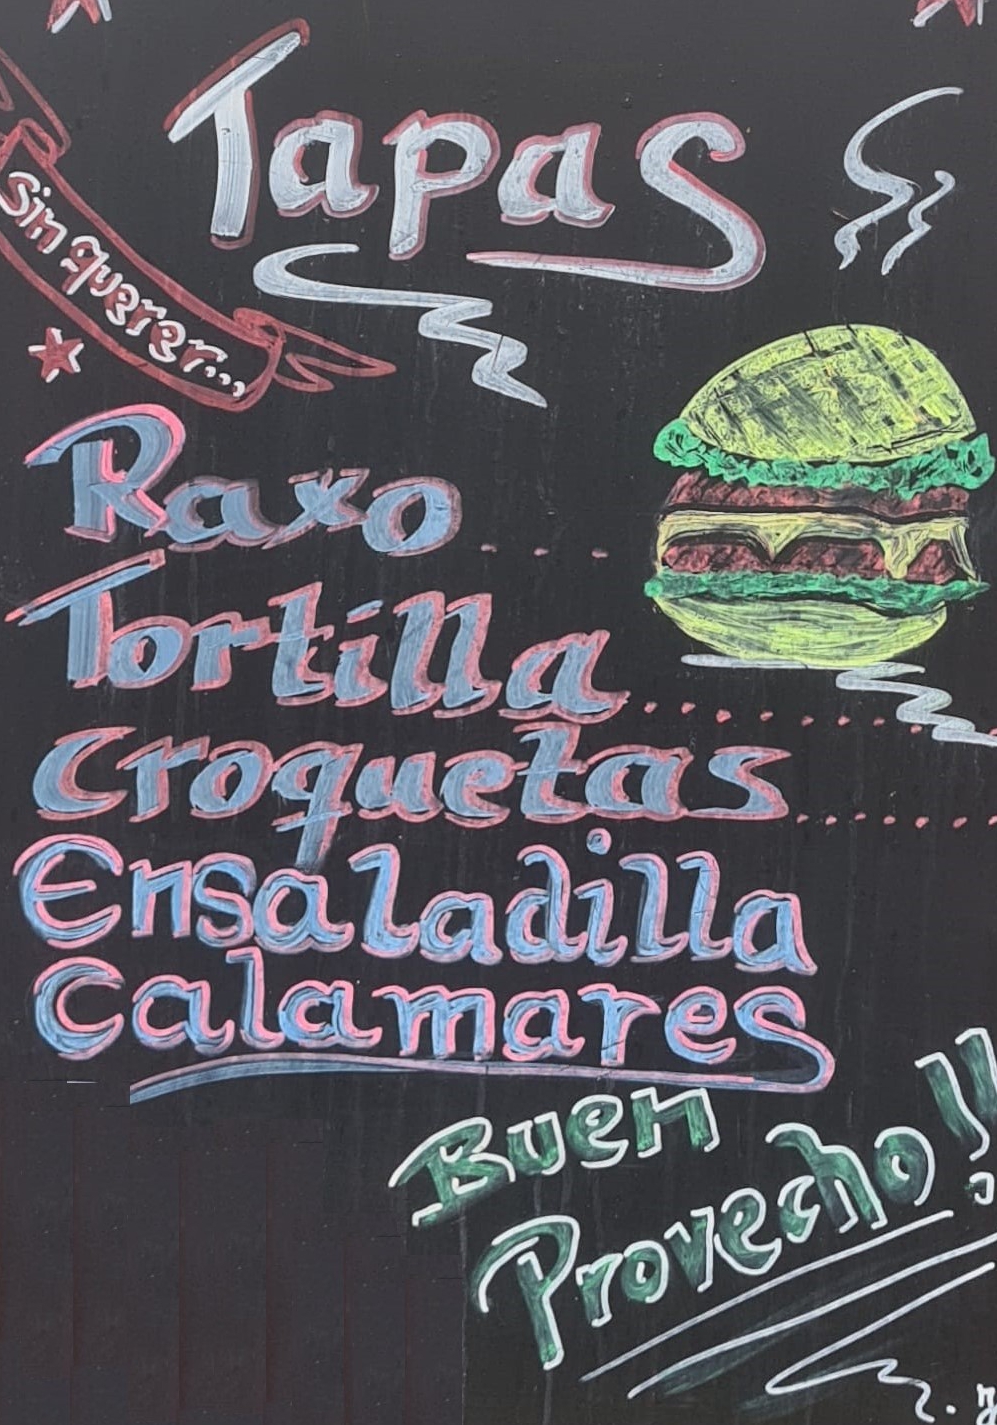 Tapas
sin querer...
Raxo....
Tortilla.........
Croquetas........
Ensaladilla
Calamares
Buen
Provecho!!